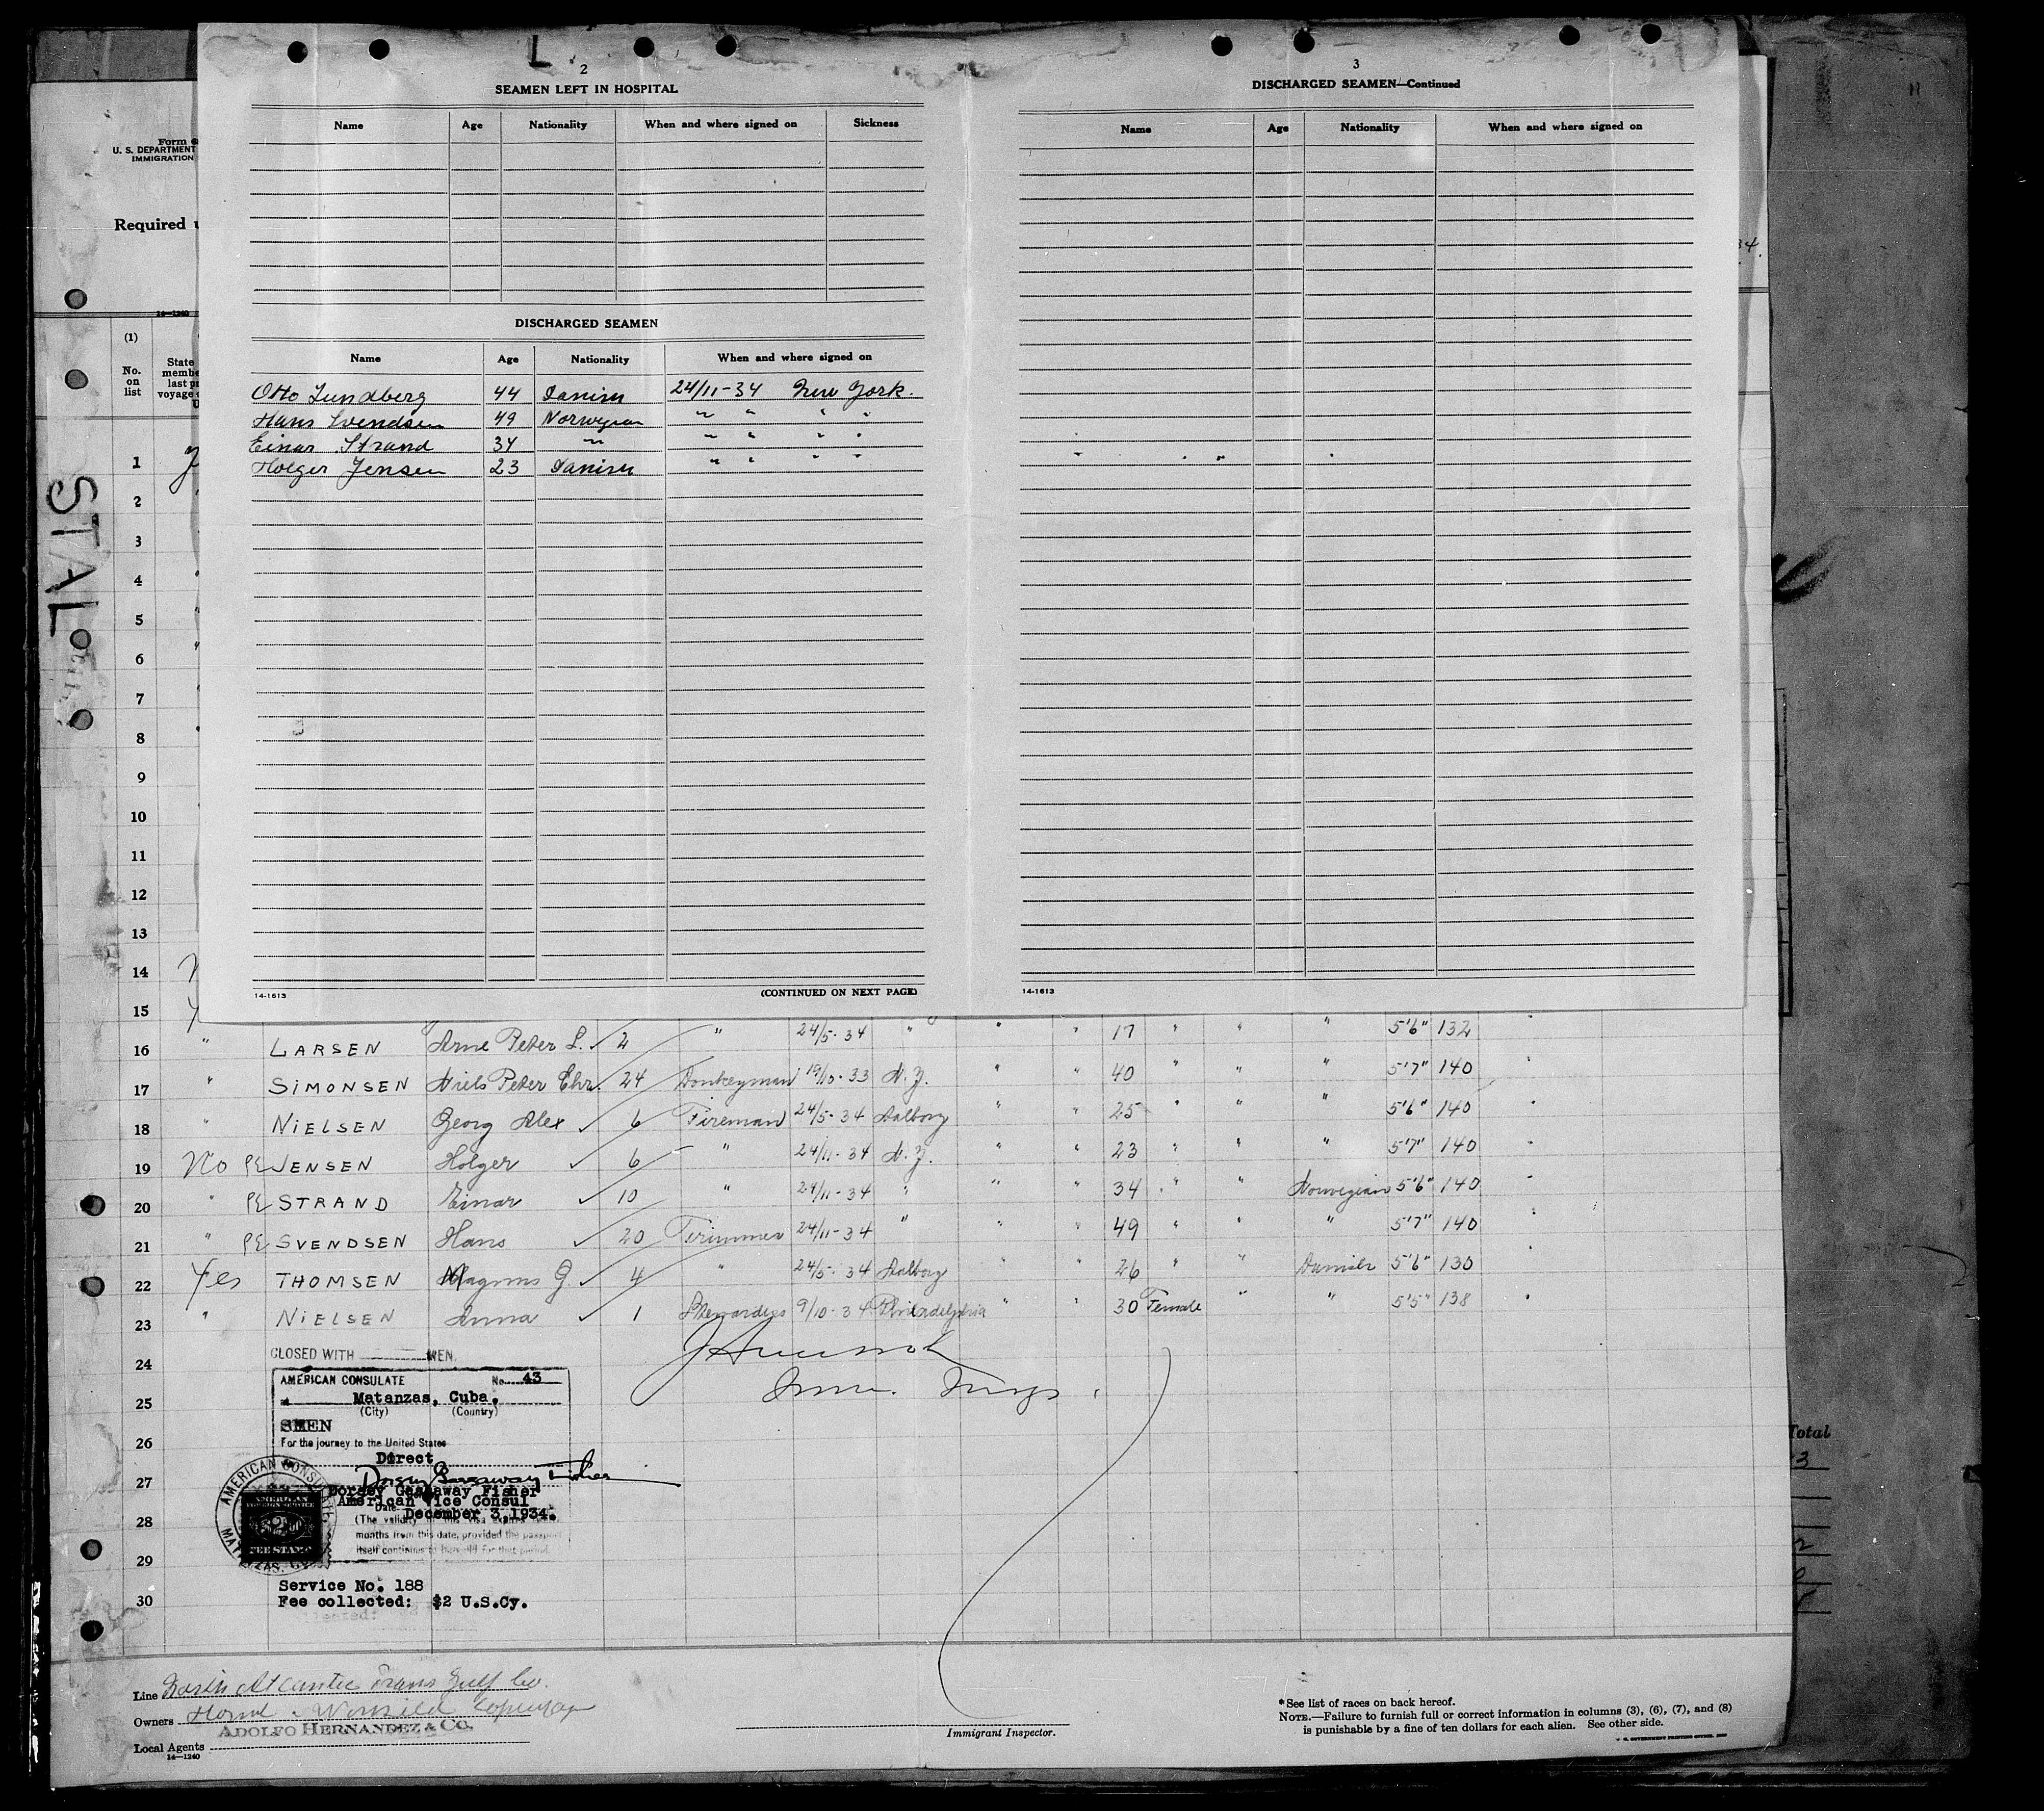 L
2
SEAMEN LEFT IN HOSPITAL
Name Age Nationality When and where signed on Sickness
DISCHARGED SEAMEN
Name Age Nationality When and where signed on
Otto Lundberg 44 Danish 24/11-34 New York.
Hans Svendsen 49 Norwegian " " " "
Einar Strand 34 " " " " "
Holger Jensen 23 Danish " " " "
14-1613 (CONTINUED ON NEXT PAGE)
3
DISCHARGED SEAMEN—Continued
Name Age Nationality When and where signed on
14-1613
11
Form
U. S. DEPARTMENT
IMMIGRATION
Required
34.
14—1240
(1)
No. on list
State
membe
last p
voyage
STAL
1
2
3
4
5
6
7
8
9
10
11
12
13
14
15
16 " LARSEN Arne Peter L. ✓ 2 " 24/5-34 " " " 17 " " " 5'6" 132 "
17 " SIMONSEN Niels Peter Chr. 24 Donkeyman 19/10-33 N.Y. " " 40 " " " 5'7" 140 "
18 " NIELSEN Georg Alex ✓ 6 Fireman 24/5-34 Aalborg " " 25 " " " 5'6" 140 "
19 No PE JENSEN Holger ✓ 6 " 24/11-34 N.Y. " " 23 " " " 5'7" 140 "
20 " PE STRAND Einar ✓ 10 " 24/11-34 " " " 34 " " Norwegian 5'6" 140 "
21 " PE SVENDSEN Hans ✓ 20 Trimmer 24/11-34 " " " 49 " " " 5'7" 140 "
22 Yes THOMSEN Magnus G. ✓ 4 " 24/5-34 Aalborg " " 26 " " Danish 5'6" 130 "
23 " NIELSEN Anna ✓ 1 Stewardess 9/10-34 Philadelphia " " 30 Female " " 5'5" 138 "
24
25
26
27
28
29
30
CLOSED WITH MEN.
AMERICAN CONSULATE No. 43
Matanzas, Cuba,
(City) (Country)
SEEN
For the journey to the United States
Direct
Dorsey Gassaway Fisher
Dorsey Gassaway Fisher
American Vice Consul
Date December 3, 1934.
(The validity of this visa expires
months from this date, provided the passport
itself continues to be valid for that period.
AMERICAN CONSULATE
MATANZAS, CUBA
AMERICAN
FOREIGN SERVICE
FEE STAMP
Service No. 188
Fee collected: $2 U.S.Cy.
Total
3
Line North Atlantic Trans Gulf Co.
Owners
ADOLFO HERNANDEZ & CO.
Local Agents
14—1240
Immigrant Inspector.
*See list of races on back hereof.
NOTE.—Failure to furnish full or correct information in columns (3), (6), (7), and (8)
is punishable by a fine of ten dollars for each alien. See other side.